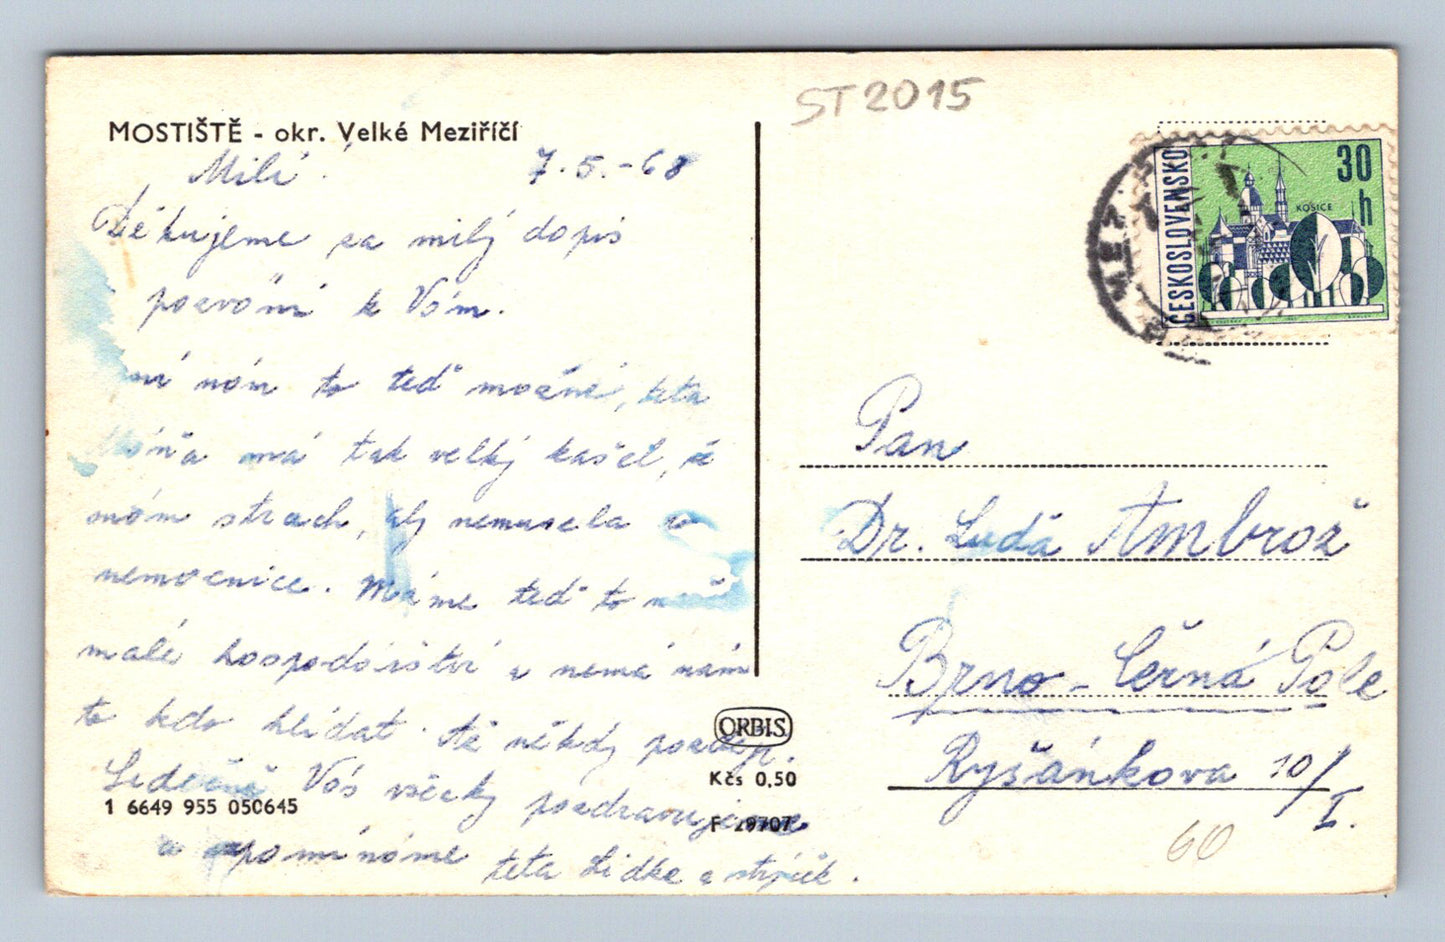 MOSTIŠTĚ - okr. Velké Meziříčí
Milí. 7.5.-68
Děkujeme za milý dopis
pozvání k Vám.
ní nám to teď možné, teta
má tak velký kašel, že
mám strach, aby nemusela
nemocnice. Máme teď to
malé hospodářství a nemá nám
to kdo hlídat. Až někdy pozděj.
Srdečně Vás všecky pozdravujeme
a vpomínáme teta Lidka a strýček.
ORBIS
Kčs 0,50
1 6649 955 050645
F 29707
ST2015
ČESKOSLOVENSKO
30 h
KOŠICE
Pan
Dr. Luďa Ambrož
Brno - Černá Pole
Ryšánkova 10/I.
60